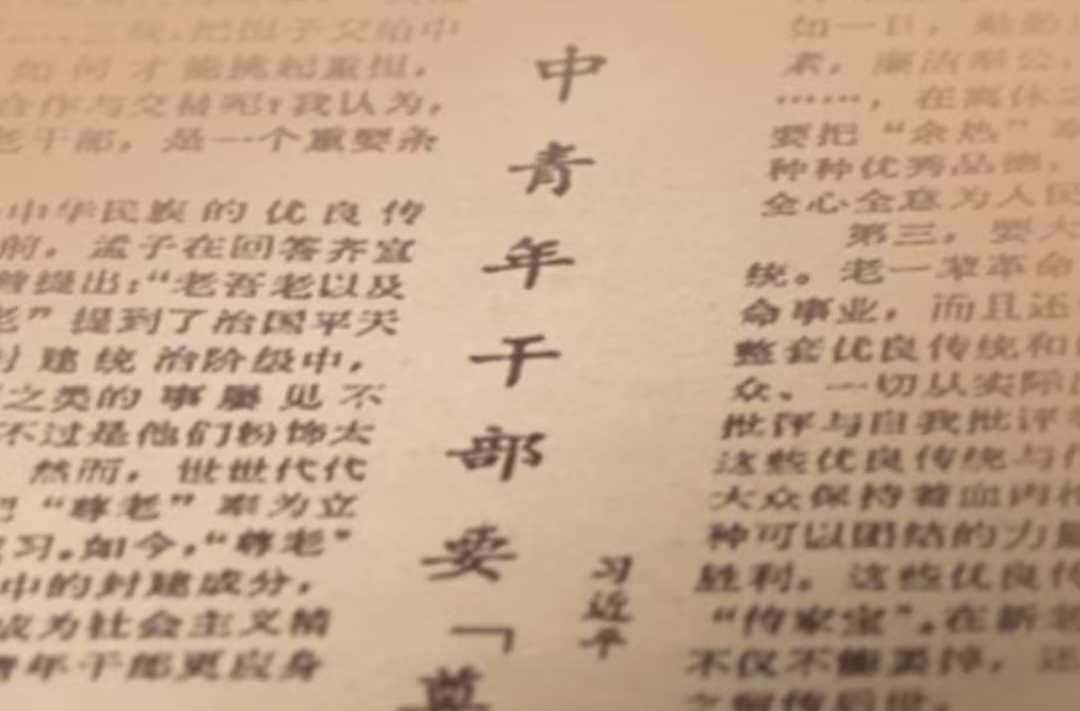 中青年干部要「尊
习近平
把担子交给中
如何才能挑起重担，
合作与交替呢？我认为，
老干部，是一个重要条
中华民族的优良传
前，孟子在回答齐宣
曾提出：“老吾老以及
老”提到了治国平天
封建统治阶级中，
之类的事屡见不
不过是他们粉饰太
然而，世世代代
把“尊老”奉为立
习。如今，“尊老”
中的封建成分，
成为社会主义精
青年干部更应身
如一日，
素，廉洁奉公，
……，在离休
要把“余热”
种种优秀品德，
全心全意为人民
第三，要大
统。老一辈革命
命事业，而且还
整套优良传统和
众、一切从实际
批评与自我批评
这些优良传统与
大众保持着血肉
种可以团结的力量
胜利。这些优良传
“传家宝”。在新老
不仅不能丢掉，还
之留传后世。